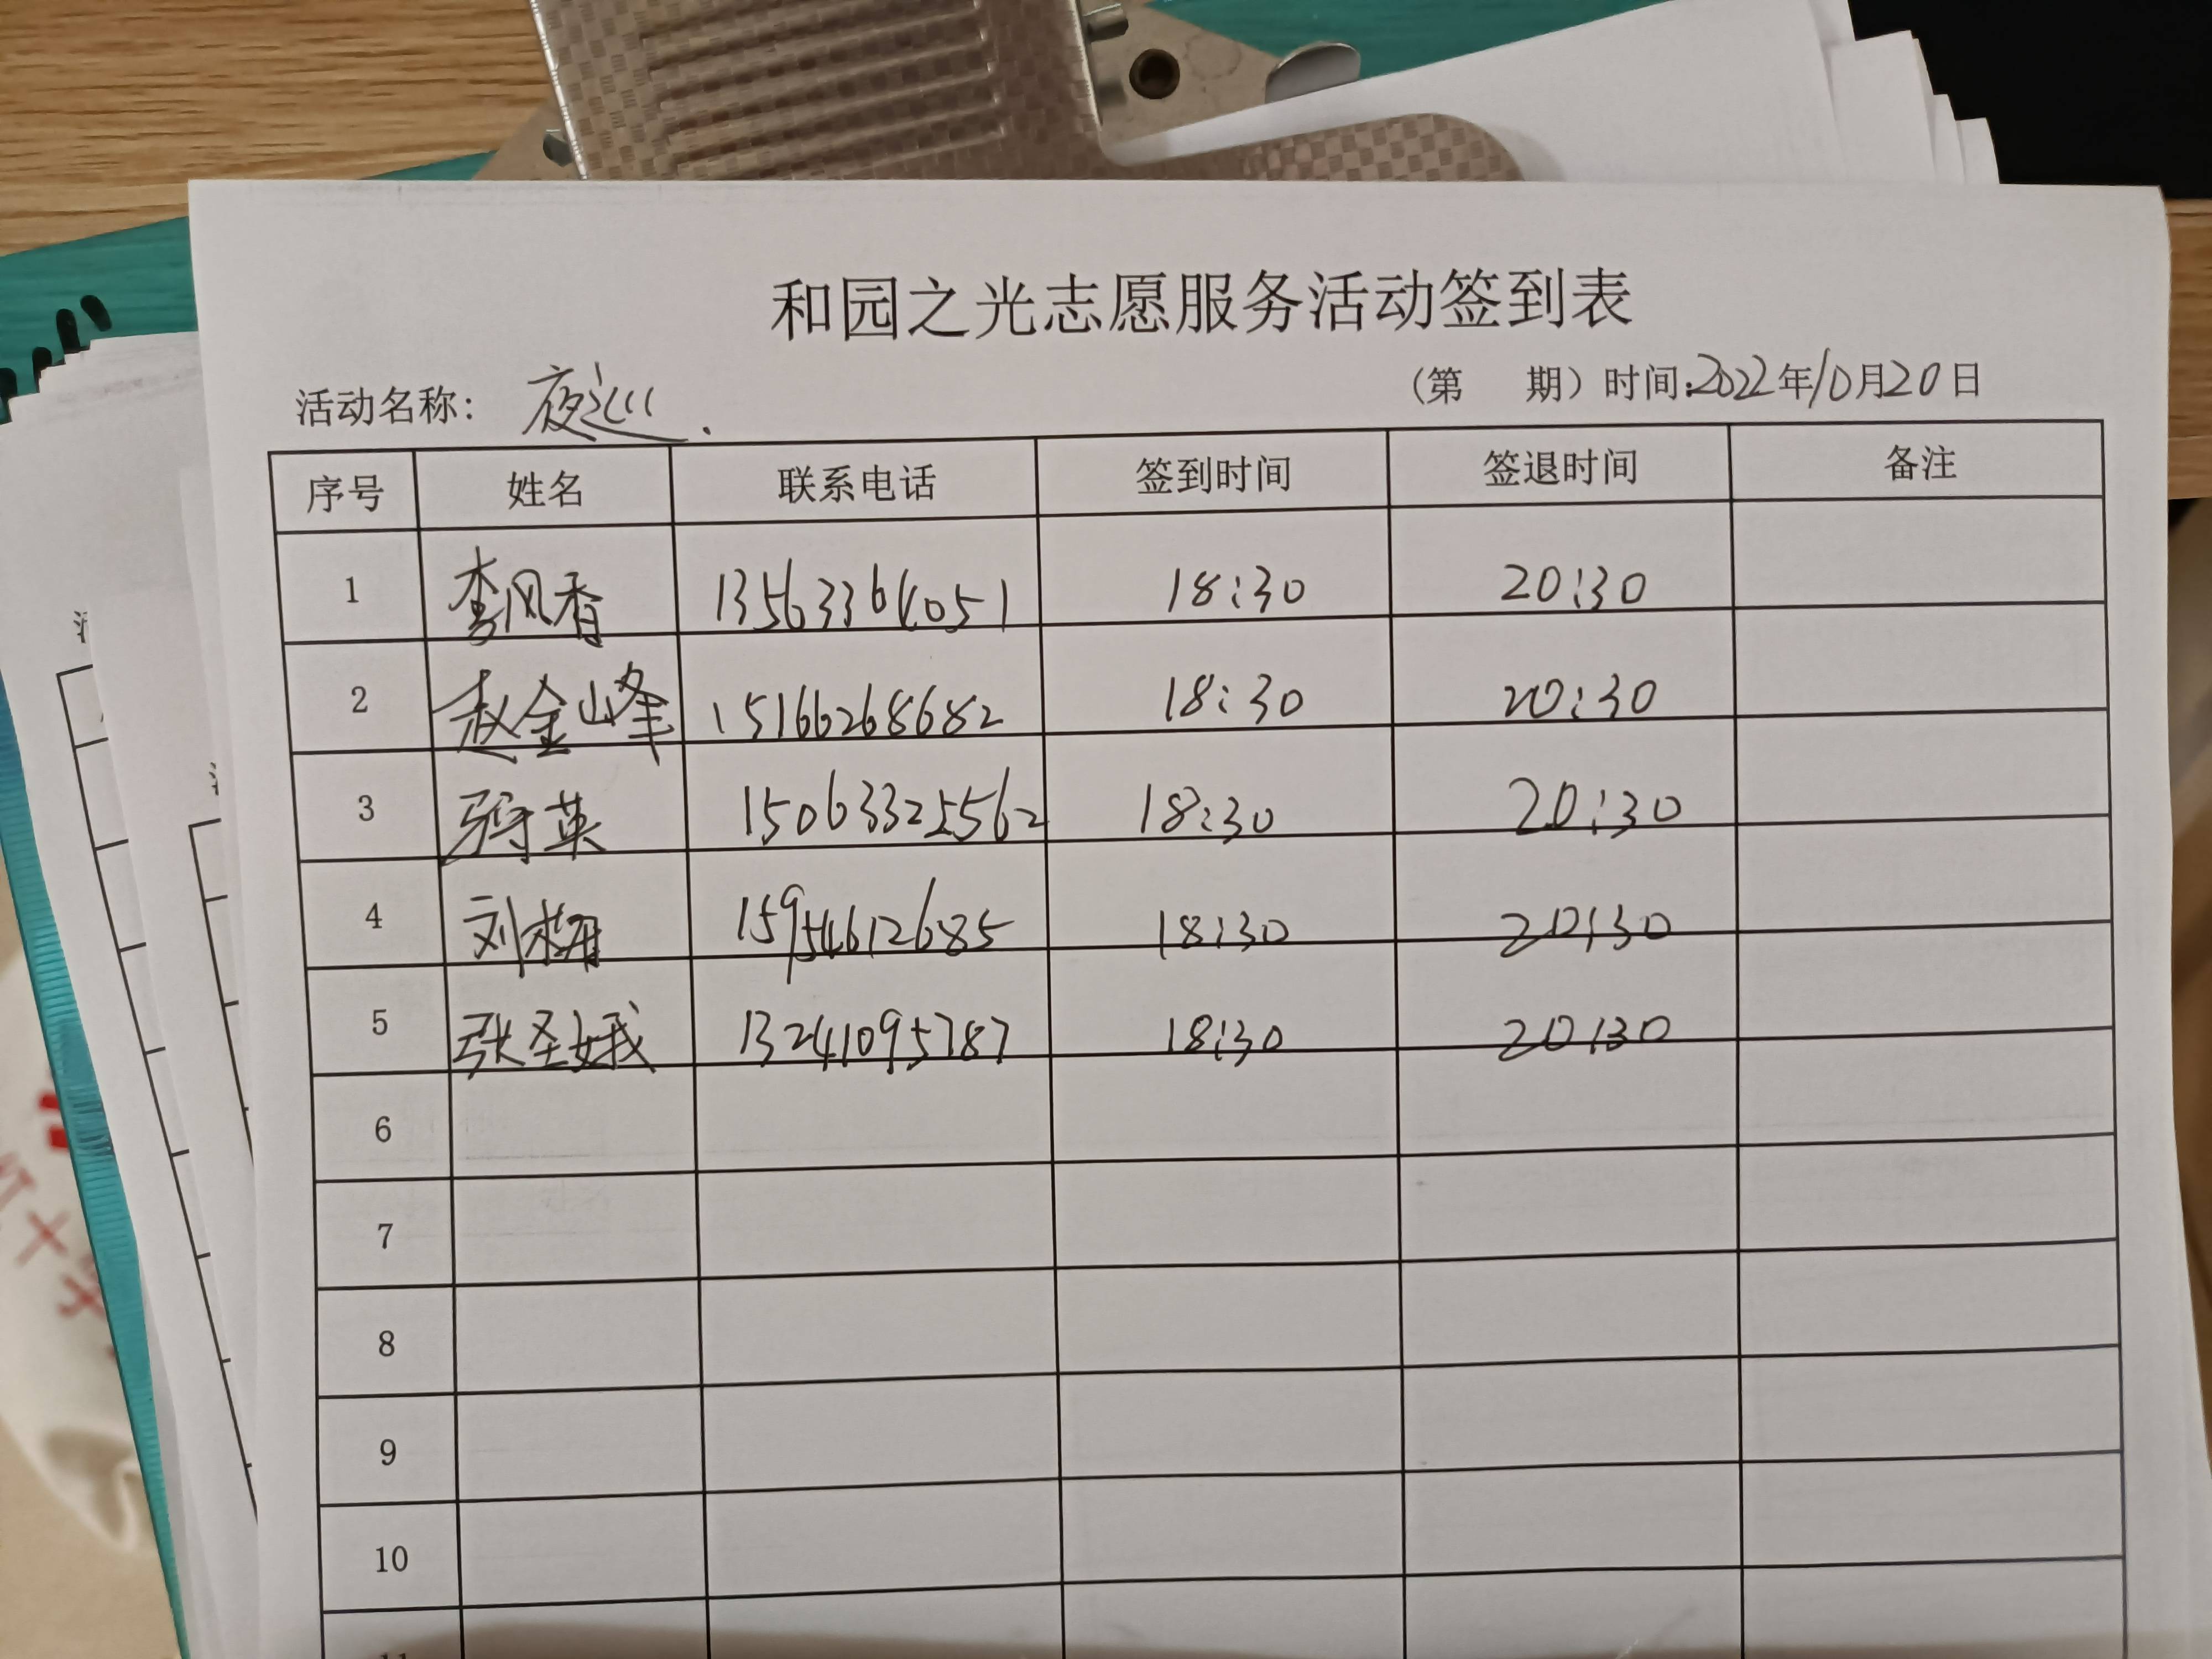 和园之光志愿服务活动签到表
活动名称: 夜巡. (第 期) 时间:2022年10月20日
序号 姓名 联系电话 签到时间 签退时间 备注
1 李风香 13563364051 18:30 20:30
2 赵金峰 15166268682 18:30 20:30
3 英 15063325562 18:30 20:30
4 刘梅 15954612685 18:30 20:30
5 张圣娥 13241095787 18:30 20:30
6
7
8
9
10